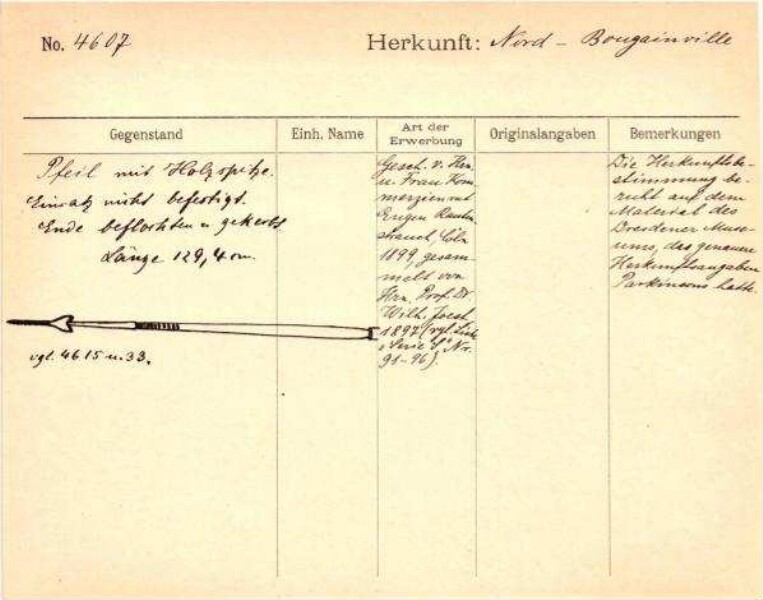 No. 4607
Herkunft: Nord - Bougainville
Gegenstand
Einh. Name
Art der
Erwerbung
Originalangaben
Bemerkungen
Pfeil mit Holzspitze.
Einsatz nicht befestigt.
Ende beflochten u. gekerbt.
Länge 129,4 cm.
vgl. 4615 u. 33.
Gesch. v. Hrn.
u. Frau Kom
merzienrat
Eugen Rauten
strauch, Cöln
1899, gesam-
melt von
Hrn. Prof. Dr.
Wilh. Joest
1897 (vgl. List.
"Serie S" Nr.
91-96).
Die Herkunftsbe-
stimmung be-
ruht auf dem
Material des
Dresdener Muse-
ums, das genaue
Herkunftsangaben
Parkinsons hatte.